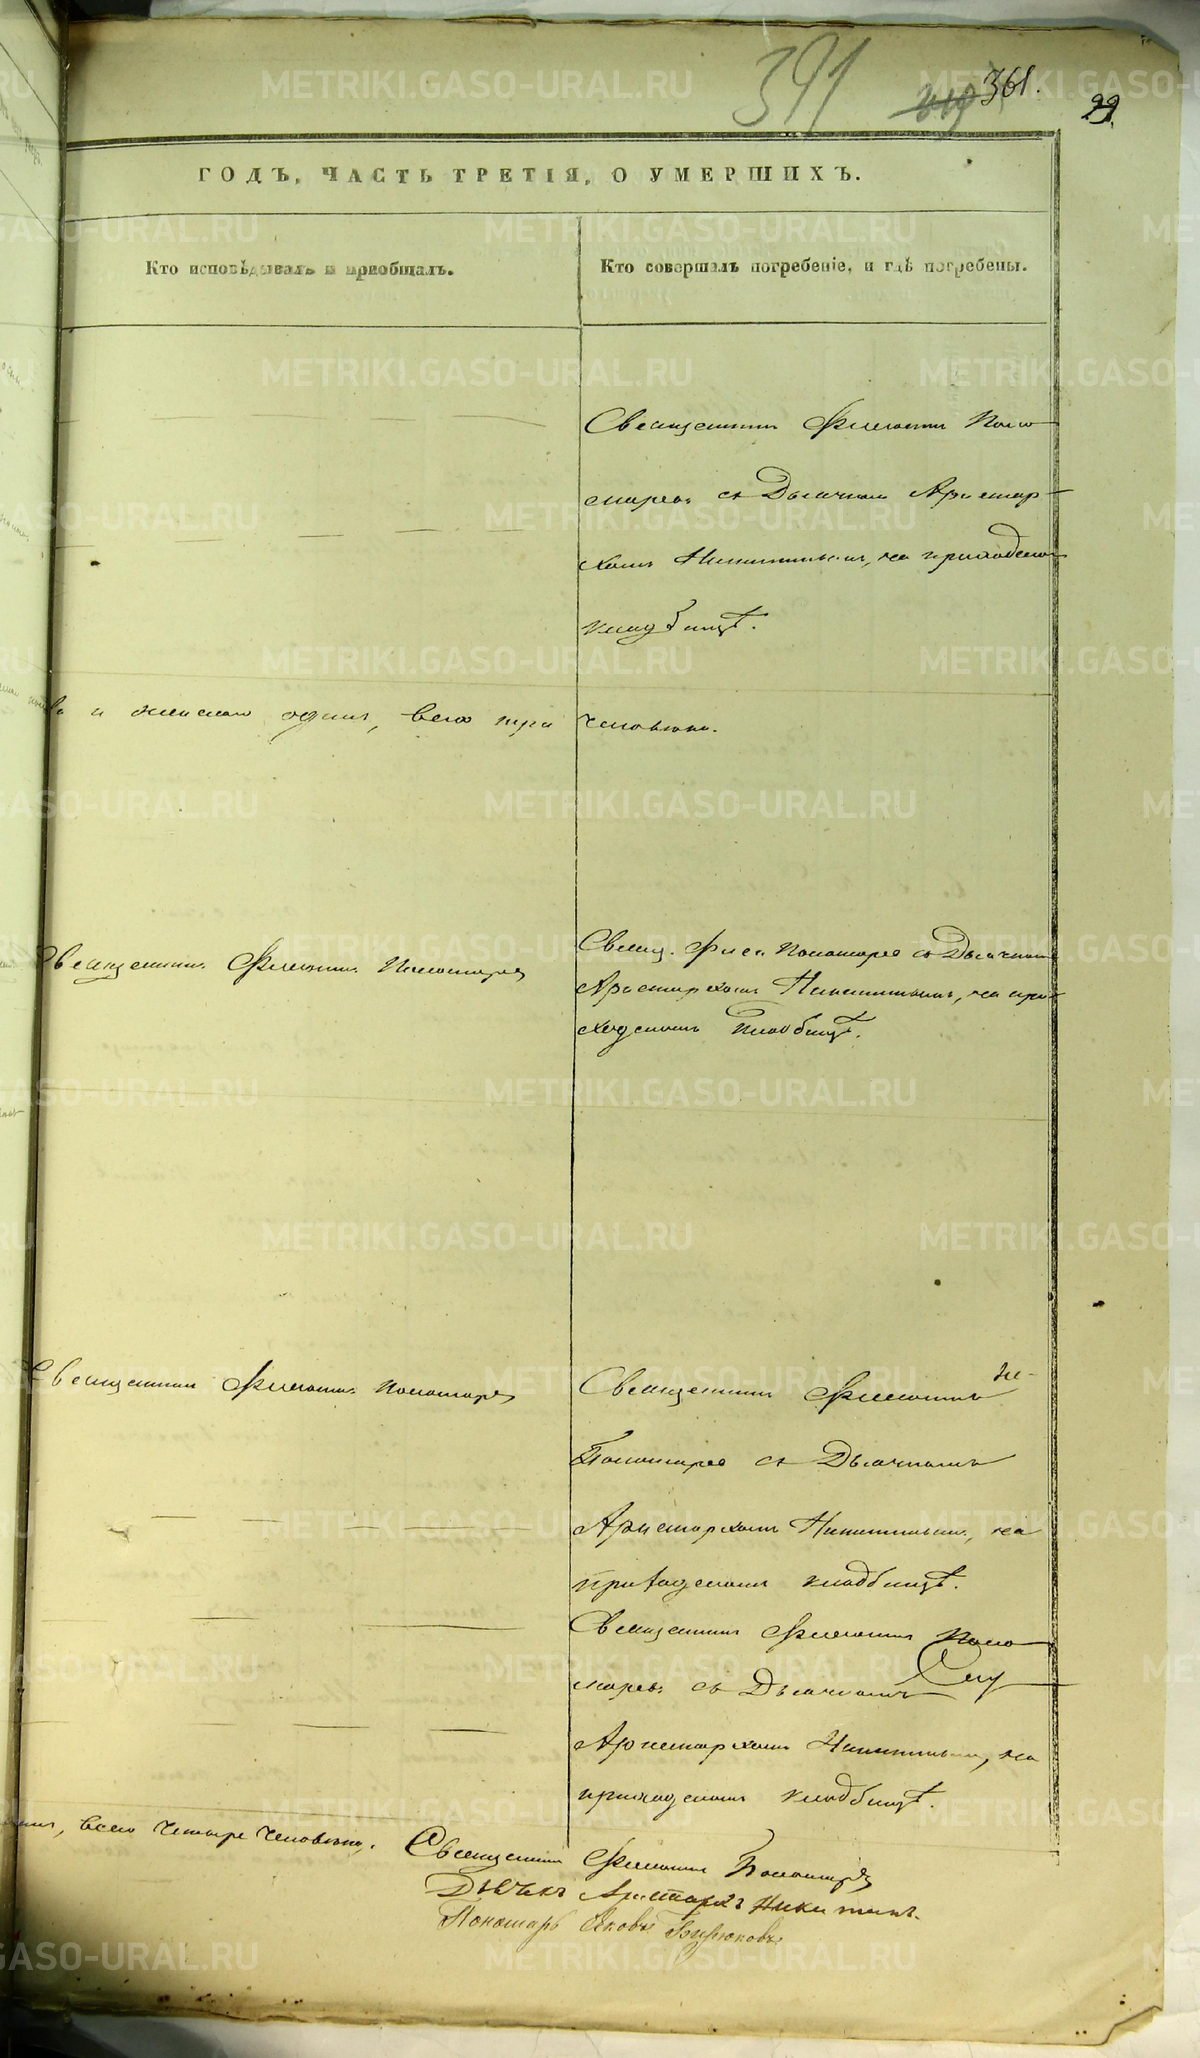 391
361.
29.
ГОДЪ, ЧАСТЬ ТРЕТІЯ, О УМЕРШИХЪ.
Кто исповѣдывалъ и приобщалъ.
Кто совершалъ погребеніе, и гдѣ погребены.
Священникъ Филиппъ Поно
маревъ съ Дьячкомъ Аристар-
хомъ Никитинымъ, на приходскомъ
кладбищѣ.
и женскаго одинъ, всего три человѣка.
Священникъ Филиппъ Пономаревъ
Свящ. Фил. Пономаревъ съ Дьячкомъ
Аристархомъ Никитинымъ, на при-
ходскомъ кладбищѣ.
Священникъ Филиппъ Пономаревъ
Священникъ Филиппъ
Пономаревъ съ Дьячкомъ
Аристархомъ Никитинымъ, на
приходскомъ кладбищѣ.
Священникъ Филиппъ Поно
маревъ съ Дьячкомъ
Аристархомъ Никитинымъ, на
приходскомъ кладбищѣ.
всего четыре человѣка.
Священникъ Филиппъ Пономаревъ
Дьячекъ Аристархъ Никитинъ.
Пономарь Яковъ Бирюковъ
METRIKI.GASO-URAL.RU